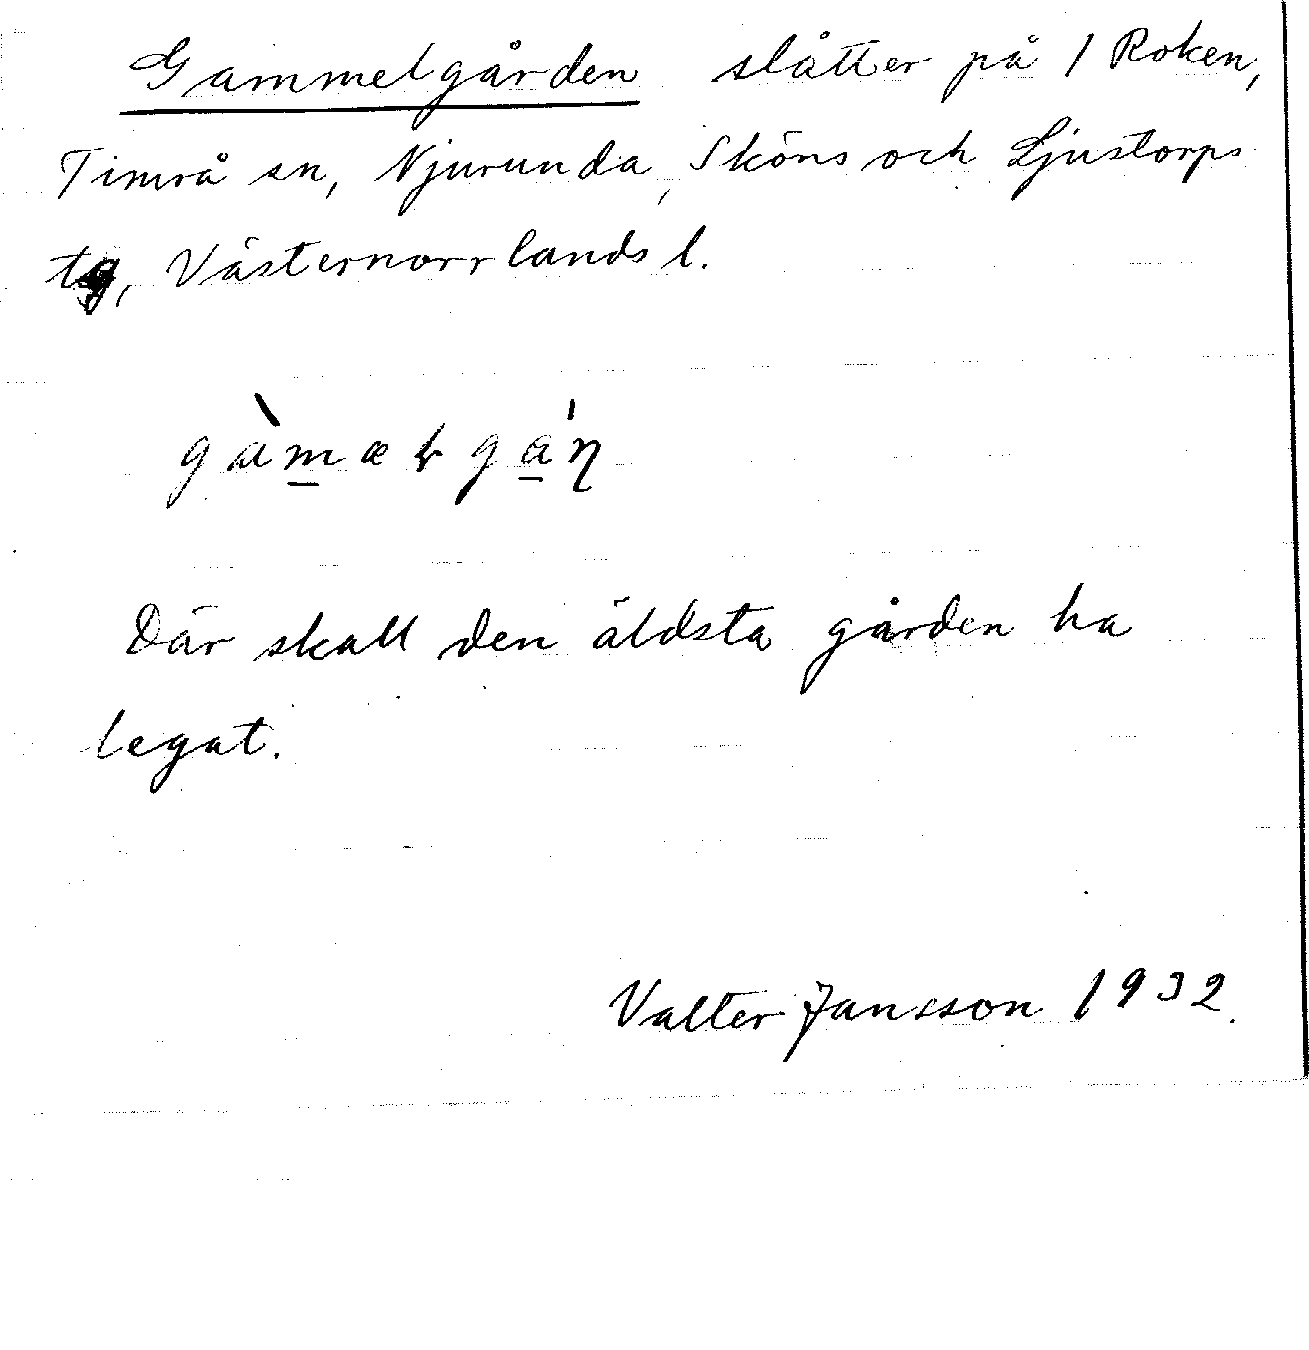 Gammelgården slåtter på 1 Roken,
Timrå sn, Njurunda, Sköns och Ljustorps
tg, Västernorrlands l.
Där skall den äldsta gården ha
legat.
Valter Jansson 1932.